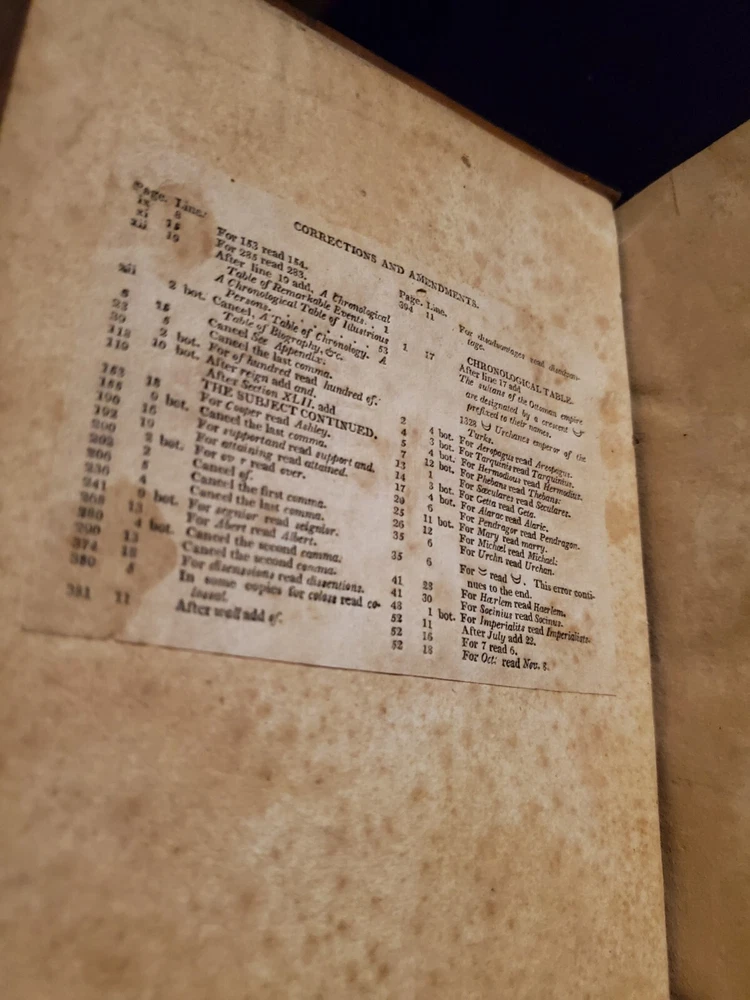 CORRECTIONS AND AMENDMENTS.
Page. Line.
ix 8 For 153 read 154.
xi 15 For 285 read 283.
xii 19 After line 19 add, A Chronological
Table of Remarkable Events. . 1
A Chronological Table of Illustrious
Persons. . . . . . . . . 53
xii 2 bot. Cancel, A Table of Chronology. A
Table of Biography, &c.
Cancel See Appendix.
Cancel the last comma.
For of hundred read hundred of.
After reign add and.
After Section XLII. add
THE SUBJECT CONTINUED.
For Cooper read Ashley.
Cancel the last comma.
For supportand read support and.
For attaining read attained.
For ov r read over.
Cancel of.
Cancel the first comma.
Cancel the last comma.
For segnior read seignior.
For Abert read Albert.
Cancel the second comma.
Cancel the second comma.
For dissensions read dissentions.
In some copies for coloss read co-
lossal.
381 11 After wall add of.
Page. Line.
394 11 For disadvantages read disadvan-
tage.
CHRONOLOGICAL TABLE.
1 17 After line 17 add
The sultans of the Ottoman empire
are designated by a crescent
prefixed to their names.
1328 Urchanes emperor of the
Turks.
2 4 bot. For Aeropagus read Areopagus.
4 3 bot. For Tarquinis read Tarquinius.
5 4 bot. For Hermodious read Hermodius.
7 12 bot. For Phebans read Thebans.
13 1 For Sæculares read Seculares.
14 3 bot. For Getta read Geta.
17 4 bot. For Alarac read Alaric.
20 6 For Pendragor read Pendragon.
25 11 bot. For Mary read marry.
26 12 For Michæl read Michael:
35 6 For Urchn read Urchan.
35 6 For read . This error conti-
nues to the end.
41 28 For Harlem read Haerlem.
41 30 For Socinius read Socinus.
48 1 bot. For Imperialits read Imperialists.
52 11 After July add 22.
52 16 For 7 read 6.
52 18 For Oct: read Nov. 8.